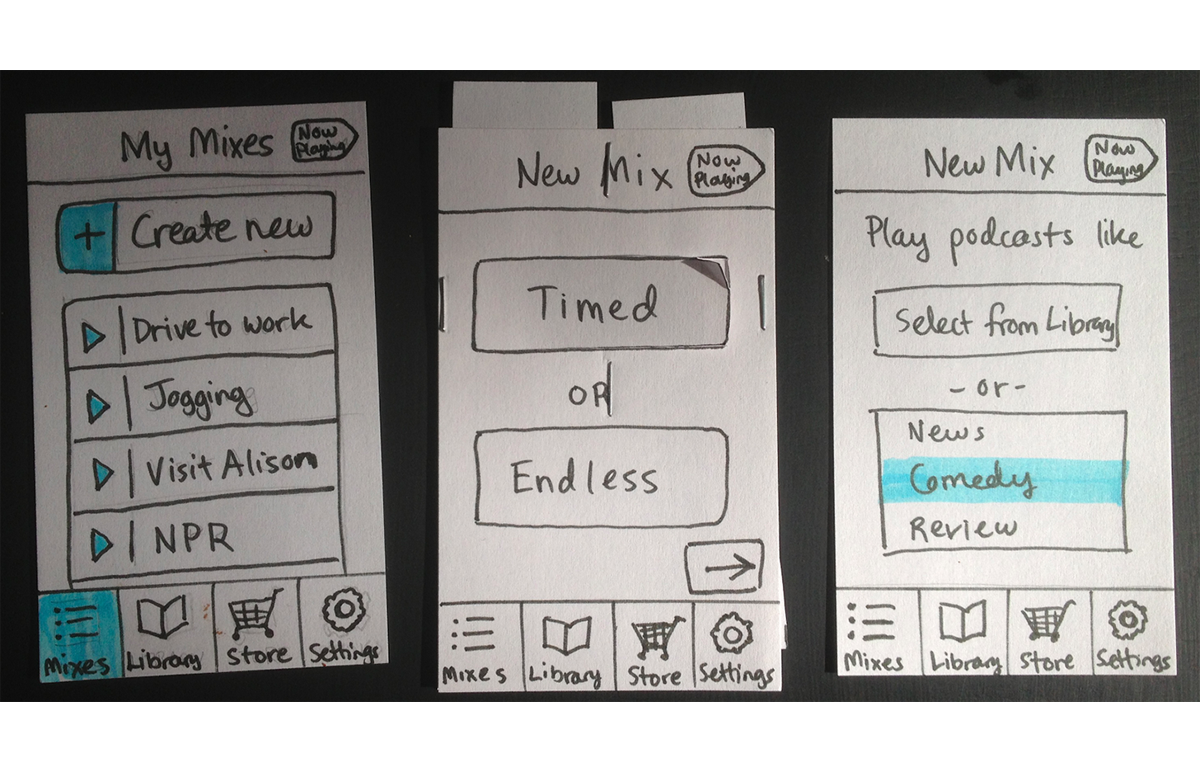 My Mixes
Now
Playing
+ Create new
Drive to work
Jogging
Visit Alison
NPR
Mixes
Library
Store
Settings
New Mix
Now
Playing
Timed
OR
Endless
Mixes
Library
Store
Settings
New Mix
Now
Playing
Play podcasts like
Select from Library
- or -
News
Comedy
Review
Mixes
Library
Store
Settings